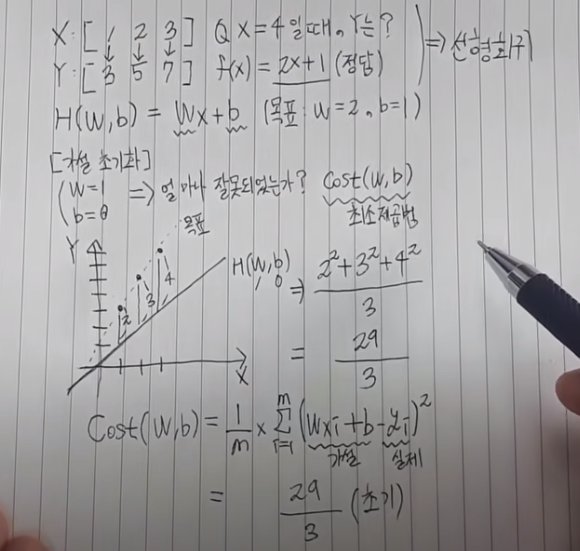 X: [ 1 2 3 ] Q X=4일 때, Y는?
Y: [ 3 5 7 ] f(x) = 2x+1 (정답) ⇒ 선형회귀
H(W,b) = Wx+b (목표: W=2, b=1)
[가설 초기화]
(W=1 ⇒ 얼마나 잘못되었는가? Cost(W,b)
b=0 최소제곱법
목표
Y
H(W,b) ⇒ 2²+3²+4² / 3
1 0
2 3 4
= 29 / 3
X
Cost(W,b) = 1/m × Σ(i=1, m) (Wxi+b-yi)²
가설 실제
= 29 / 3 (초기)